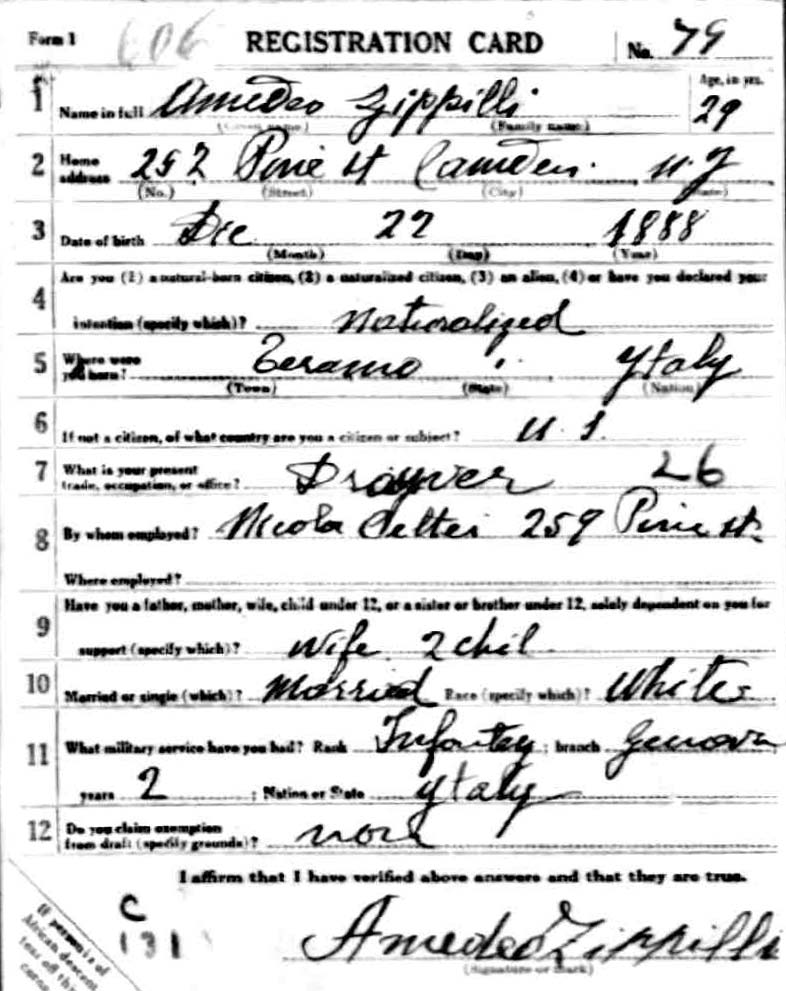 Form 1 606 REGISTRATION CARD No. 79
1 Name in full Amedeo Zippilli Age, in yrs. 29
(Given name) (Family name)
2 Home address 252 Pine St Camden N. J
(No.) (Street) (City) (State)
3 Date of birth Dec 22 1888
(Month) (Day) (Year)
4 Are you (1) a natural-born citizen, (2) a naturalized citizen, (3) an alien, (4) or have you declared your
intention (specify which)? Naturalized
5 Where were you born? Teramo Ytaly
(Town) (State) (Nation)
6 If not a citizen, of what country are you a citizen or subject? U. S.
7 What is your present trade, occupation, or office? 26
8 By whom employed? Nicola 259 Pine st.
Where employed?
9 Have you a father, mother, wife, child under 12, or a sister or brother under 12, solely dependent on you for
support (specify which)? Wife 2 chil
10 Married or single (which)? Married Race (specify which)? White
11 What military service have you had? Rank Infantry ; branch Genova
years 2 ; Nation or State Ytaly
12 Do you claim exemption from draft (specify grounds)?
I affirm that I have verified above answers and that they are true.
C
131
Amedeo Zippilli
(Signature or mark)
If person is of
African descent
tear off this
corner